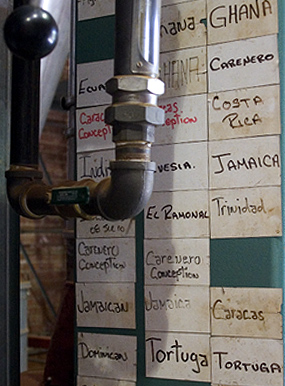 GHANA
CARENERO
ECUA
Caracas
Conception
Caracas
Conception
COSTA
RICA
Indi
VESIA.
JAMAICA
DE JULIO
EL RAMONAL
Trinidad
CARENERO
Conception
CARENERO
Conception
JAMAICAN
Jamaica
Caracas
DOMINICAN
Tortuga
TORTUGA